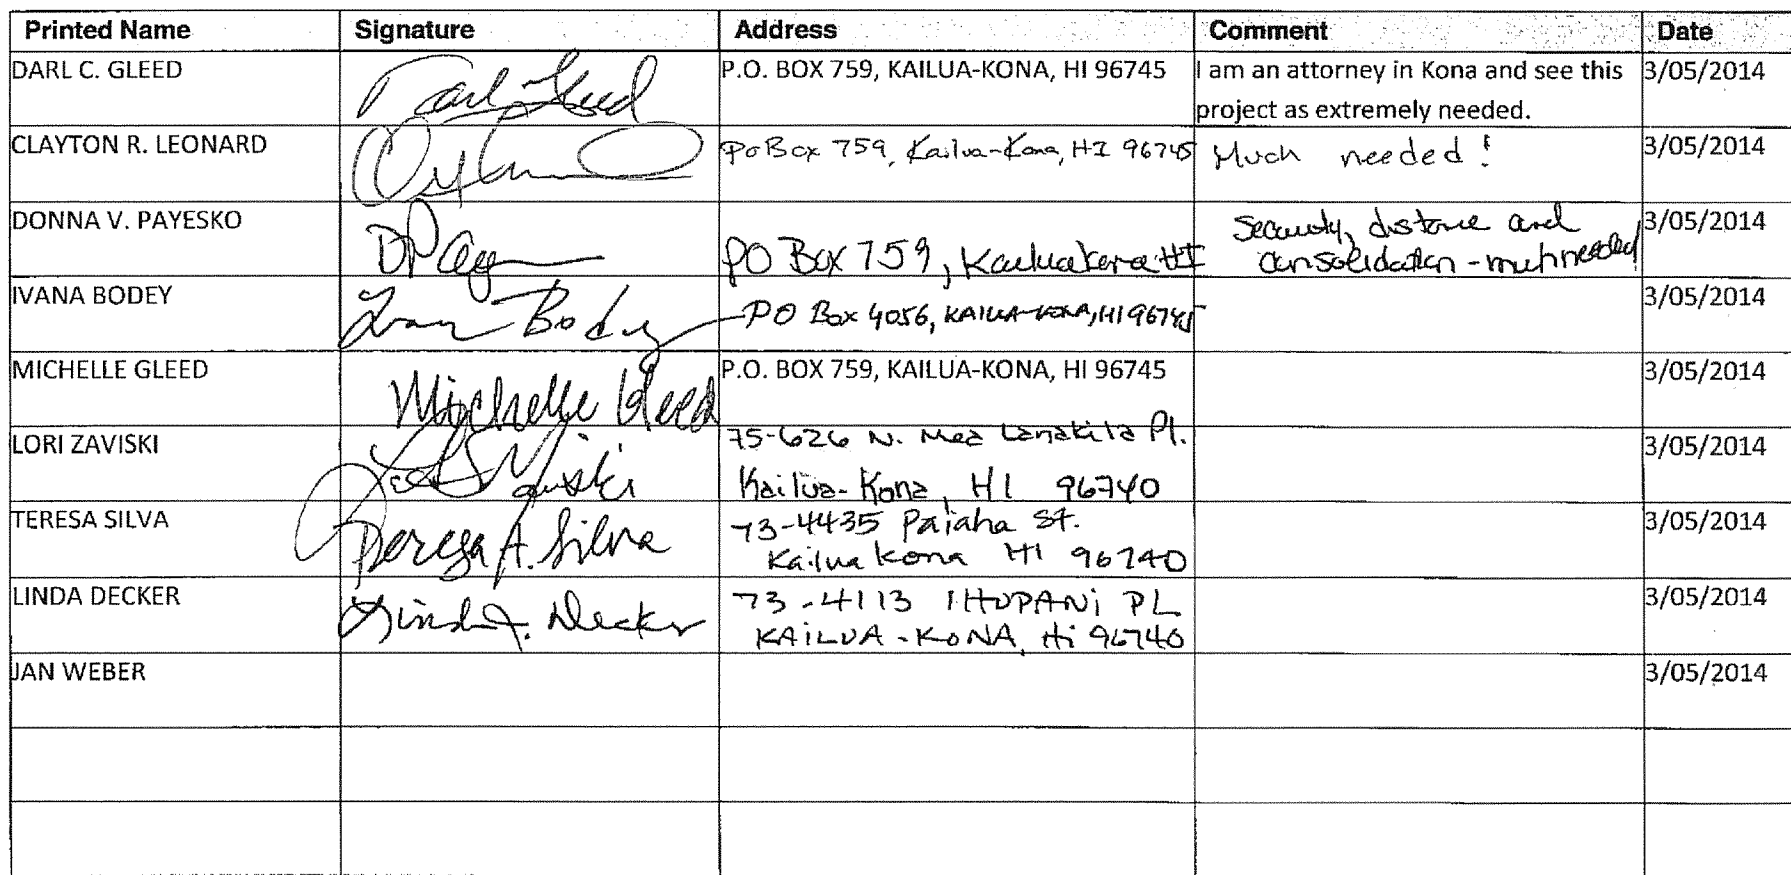 Printed Name Signature Address Comment Date
DARL C. GLEED Darl Gleed P.O. BOX 759, KAILUA-KONA, HI 96745 I am an attorney in Kona and see this 3/05/2014
project as extremely needed.
CLAYTON R. LEONARD PO Box 759, Kailua-Kona, HI 96745 Much needed! 3/05/2014
DONNA V. PAYESKO PO Box 759, Kailua Kona HI Security, distance and 3/05/2014
consolidation - much needed
IVANA BODEY Ivana Bodey PO Box 4056, KAILUA-KONA, HI 96745 3/05/2014
MICHELLE GLEED Michelle Gleed P.O. BOX 759, KAILUA-KONA, HI 96745 3/05/2014
LORI ZAVISKI 75-626 N. Mea Lanakila Pl. 3/05/2014
Lori Zaviski Kailua-Kona, HI 96740
TERESA SILVA Teresa A. Silva 73-4435 Paiaha St. 3/05/2014
Kailua Kona HI 96740
LINDA DECKER Linda J. Decker 73-4113 IHUPANI PL 3/05/2014
KAILUA-KONA, Hi 96740
JAN WEBER 3/05/2014